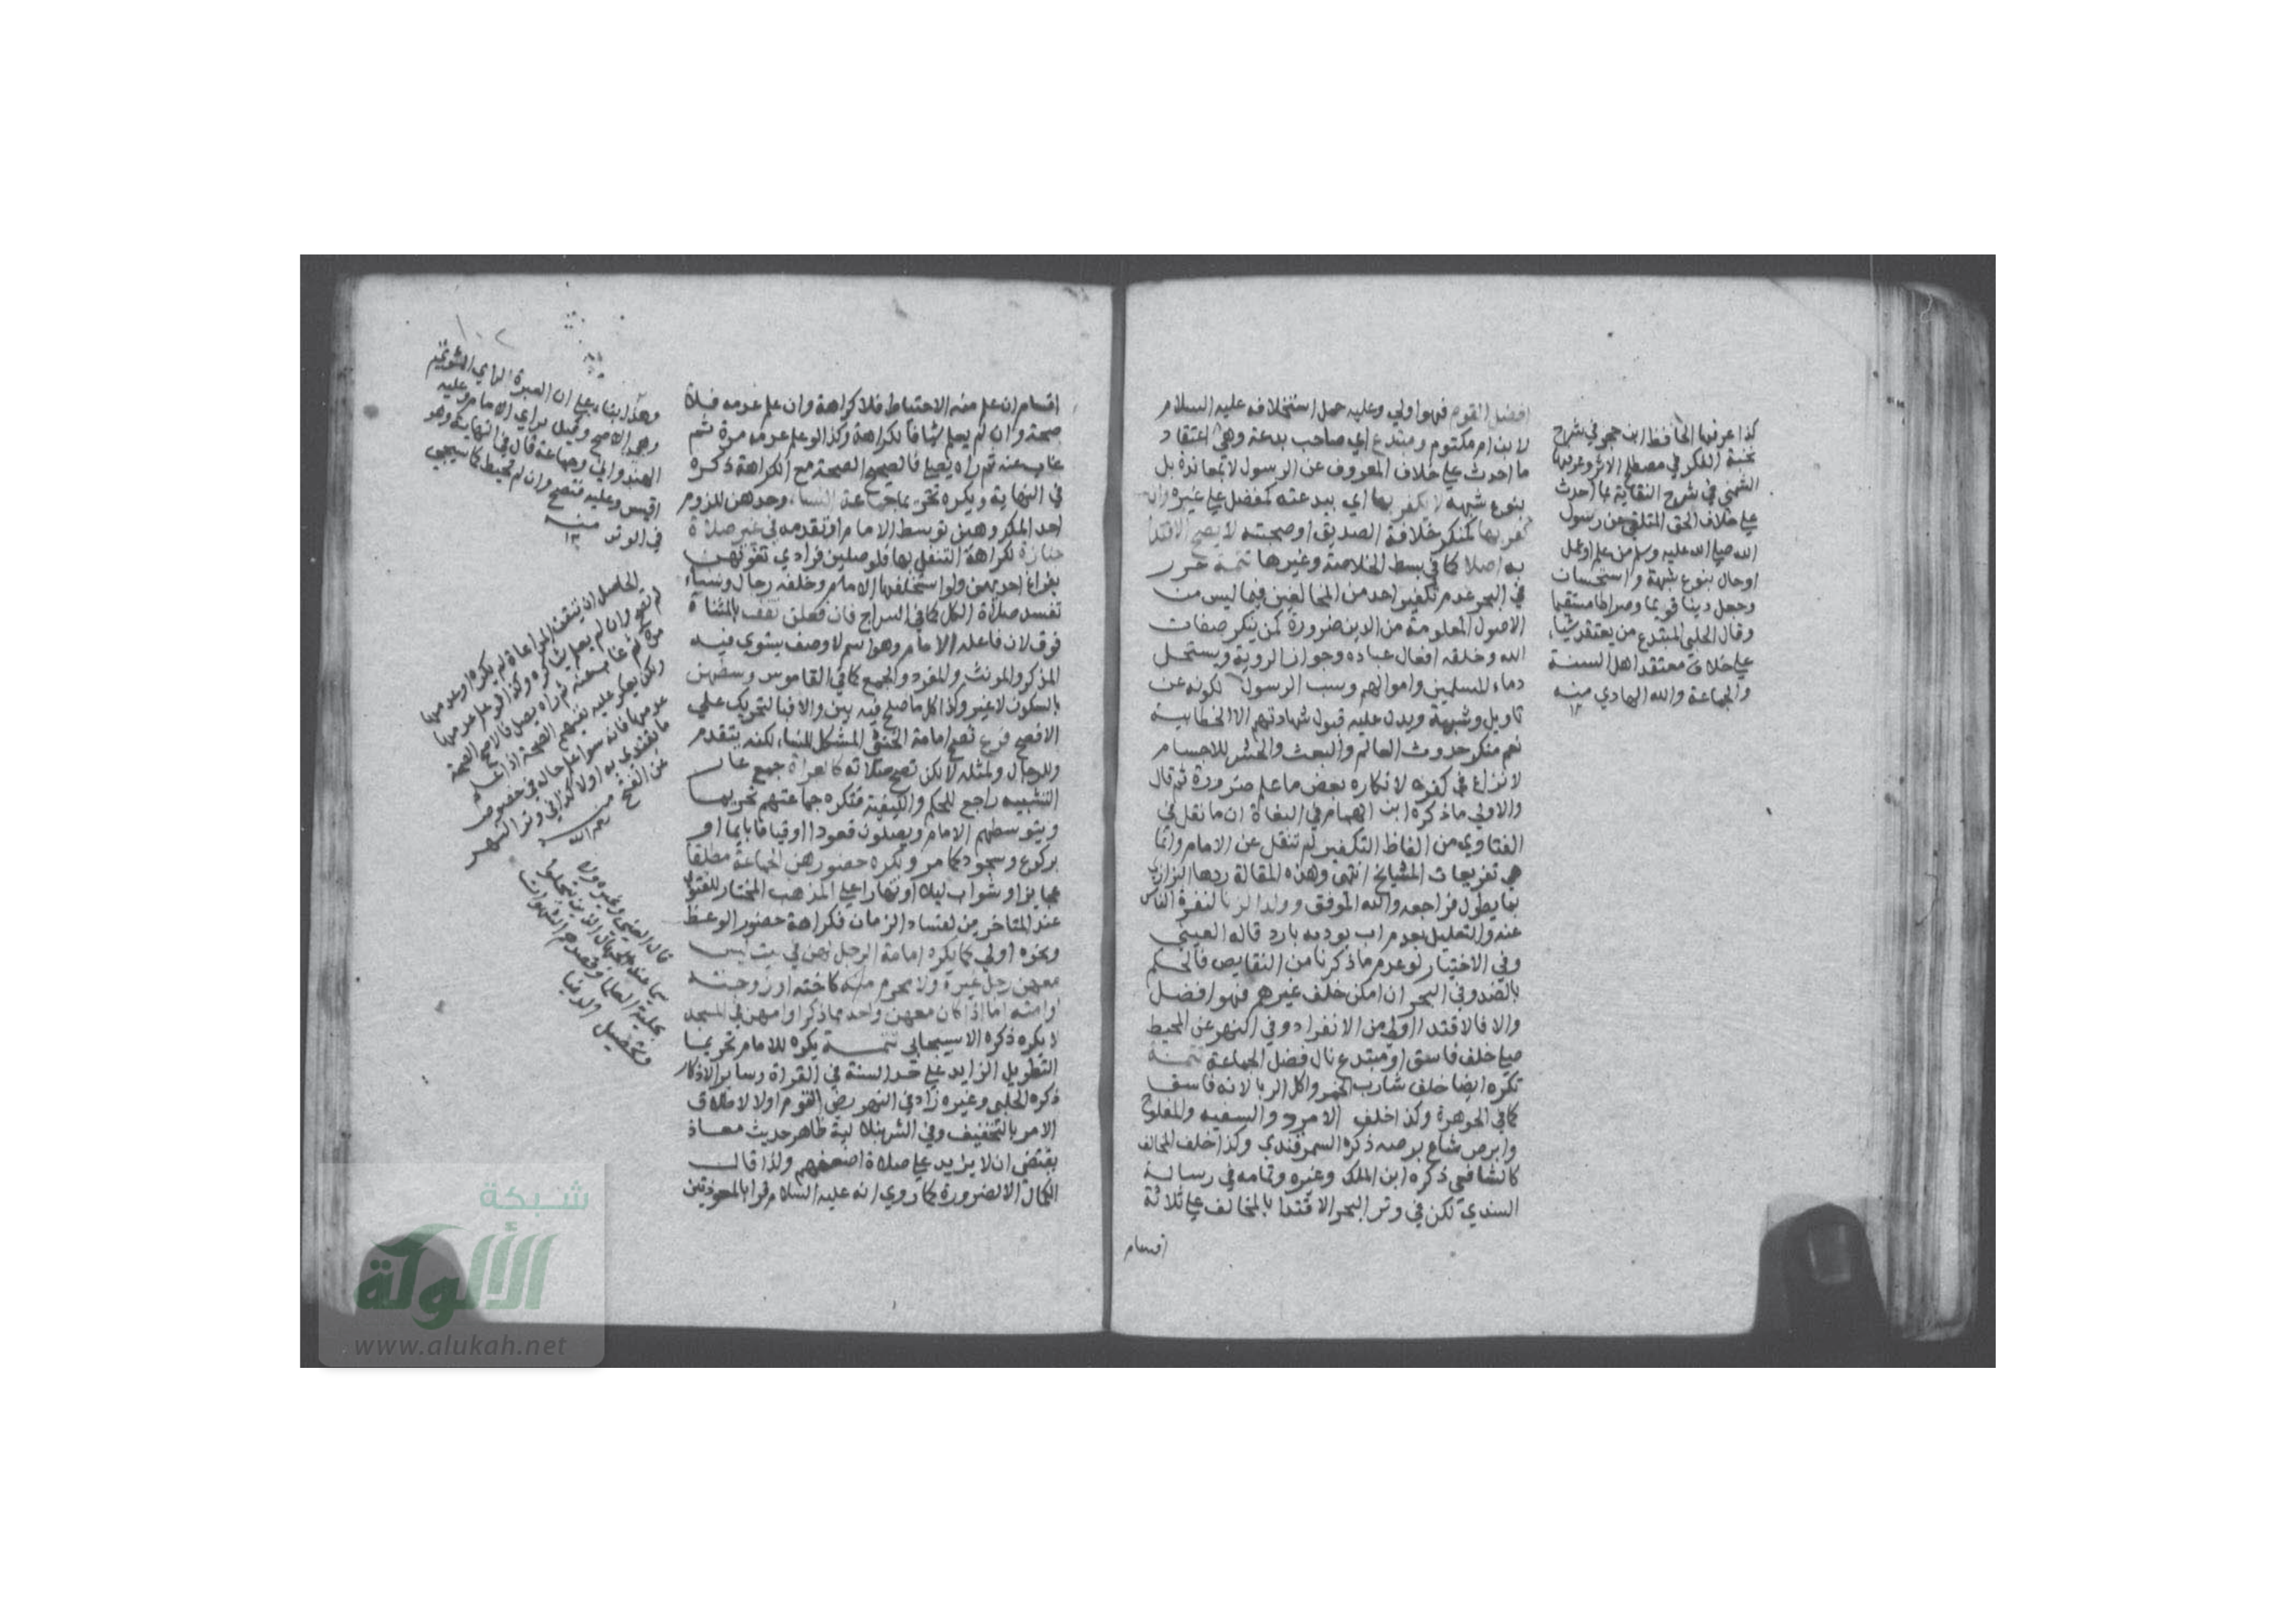 افضل القوم فهو اولي وعليه حمل استخلافه عليه السلام
لابن ام مكتوم ومبتدع اي صاحب بدعة وهي اعتقاد
ما احدث علي خلاف المعروف عن الرسول لا بمعاندة بل
بنوع شبهة لا يكفر بها اي ببدعته كمفضل علي غيره وان
كفر بها كمنكر خلافة الصديق او صحبته لا يصح الاقتدا
به اصلا كما في بسط الخلاصة وغيرها تتمة حرر
في البحر عدم تكفير احد من المخالفين فيما ليس من
الاصول المعلومة من الدين ضرورة كمن ينكر صفات
الله وخلقه افعال عباده وجواز الروية ويستحل
دماء المسلمين واموالهم وسب الرسول لكونه عن
تاويل وشبهة ويدل عليه قبول شهادتهم الا الخطابية
نعم منكر حدوث العالم والبعث والحشر للاجسام
لا نزاع في كفره لانكاره بعض ما علم ضرورة ثم قال
والاولي ما ذكره ابن الهمام في البغاة ان ما نقل في
الفتاوي من الفاظ التكفير لم تنقل عن الامام وانما
هي تفريعات المشايخ انتهي وهذه المقالة ردها البزازي
بما يطول فراجعه والله الموفق وولد الزنا لنفرة الناس
عنه والتعليل بعدم اب يودبه بارد قاله العيني
وفي الاختيار لو عدم ما ذكرنا من النقايص فالحكم
بالضد وفي البحر ان امكن خلف غيرهم فهو افضل
والا فالاقتدا اولي من الانفراد وفي النهر عن المحيط
صلي خلف فاسق او مبتدع نال فضل الجماعة تتمة
تكره ايضا خلف شارب الخمر واكل الربا لانه فاسق
كما في الجوهرة وكذا خلف الامرد والسفيه والمفلوج
وابرص شاع برصه ذكره السمرقندي وكذا خلف المخالف
كالشافعي ذكره ابن الملك وغيره وتمامه في رسالة
السندي لكن في وتر البحر الاقتدا بالمخالف علي ثلاثة
اقسام
كذا عرفها الحافظ ابن حجر في شرح
نخبة الفكر في مصطلح الاثر وعرفها
الشمني في شرح النقاية بما احدث
علي خلاف الحق المتلقي عن رسول
الله صلي الله عليه وسلم من علم او عمل
او حال بنوع شبهة واستحسان
وجعل دينا قويما وصراطا مستقيما
وقال الحلبي المبتدع من يعتقد شيا
علي خلاف معتقد اهل السنة
والجماعة والله الهادي منه
١٢
اقسام ان علم منه الاحتياط فلا كراهة وان علم عدمه فلا
صحة وان لم يعلم شيا فالكراهة وكذا لو علم عدمه مرة ثم
غاب عنه ثم راه يصلي فالصحيح الصحة مع الكراهة ذكره
في النهاية ويكره تحريما جماعة النساء وحدهن للزوم
احد المكروهين توسط الامام او تقدمه في غير صلاة
جنازة لكراهة التنفل بها فلو صلين فرادي تفوتهن
بفراغ احديهن ولو استخلفها الامام وخلفه رجال ونساء
تفسد صلاة الكل كما في السراج فان فعلن تقف بالمثناة
فوق لان فاعله الامام وهو اسم لا وصف يستوي فيه
المذكر والمونث والمفرد والجمع كما في القاموس وسطهن
بالسكون لا غير وكذا كل ما صلح فيه بين والا فبالتحريك علي
الافصح فرع تصح امامة الخنثي المشكل للنساء لكنه يتقدم
وللرجال ولمثله لا لكن تصح صلاته كالعراة جمع عار
التشبيه راجع للحكم والكيفية فتكره جماعتهم تحريما
ويتوسطهم الامام ويصلون قعودا او قياما بايما او
بركوع وسجود كما مر ويكره حضورهن الجماعة مطلقا
عجايز او شواب ليلا او نهارا علي المذهب المختار للفتوي
عند المتاخرين لفساد الزمان فكراهة حضور الوعظ
ونحوه اولي كما يكره امامة الرجل لهن في بيت ليس
معهن رجل غيره ولا محرم منه كاخته او زوجته
او امته اما اذا كان معهن واحد مما ذكر او امهن في المسجد
لا يكره ذكره الاسبيجابي تتمة يكره للامام تحريما
التطويل الزايد علي حد السنة في القراة وساير الاذكار
ذكره الحلبي وغيره زاد في النهر رضي القوم اولا لاطلاق
الامر بالتخفيف وفي الشرنبلالية ظاهر حديث معاذ
يقتضي ان لا يزيد علي صلاة اضعفهم ولذا قال
الكمال الا لضرورة كما روي انه عليه السلام قرا بالمعوذتين
١٠٢
وهذا بناء علي ان العبرة لراي المؤتم
وهو الاصح وقيل لراي الامام وعليه
الهندواني وجماعة قال في النهاية وهو
اقيس وعليه فتصح وان لم يحتط كما سيجي
في الوتر منه
١٢
الحاصل ان تيقنت المراعاة لم يكره او عدمها
لم تصح وان لم يعلم شيا كره وكذا لو علم عدمها
مرة ثم غاب عنه ثم راه يصلي فالاصح الصحة
ولكن يعكر عليه تصحيح الصحة اذا علم
عدمها فانه سواء علم حاله في خصوص
ما يقتدي به اولا كذا في وتر النهر
عن الفتح منه
رحمه الله
قال العيني وغيره
سيما عند الجهال الذين تحلوا
بحلية العلماء وقصدهم الشهوات
وتحصيل الدنيا
شبكة
الألوكة
www.alukah.net